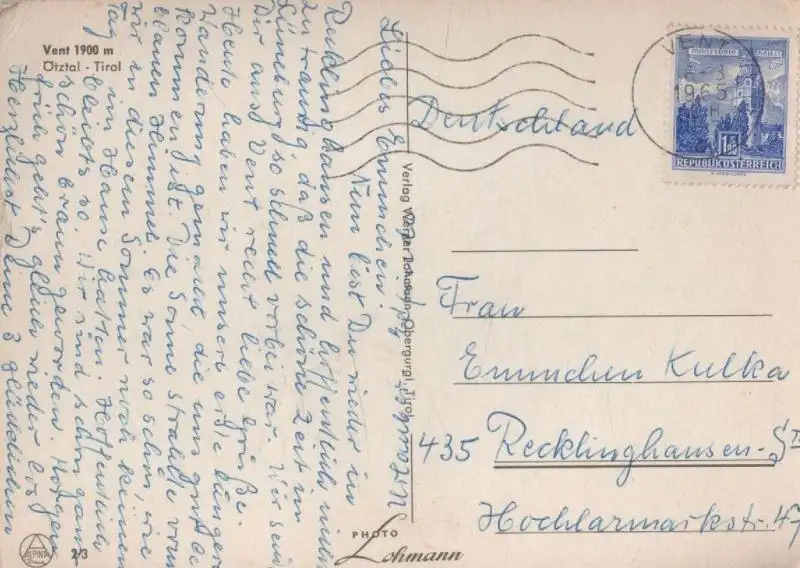 Vent 1900 m
Ötztal - Tirol
Liebes Emmchen!
Nun bist Du wieder in
Recklinghausen und hoffentlich nicht
zu traurig, daß die schöne Zeit in
Lüneburg so schnell vorbei war. Wir senden
Dir aus Vent recht liebe Grüße.
Heute haben wir unsere erste längere
Wanderung gemacht, die uns gut be-
kommen ist. Die Sonne strahlte vom
blauen Himmel. Es war so schön, wie
wir in diesem Sommer noch keinen
Tag im Hause hatten. Hoffentlich
bleibt's so. Wir sind schon ganz
schön braun geworden. Morgen
früh geht's gleich wieder los
Herzlichst Deine 3 glücklichen
VENT
1965
1.80
REPUBLIK ÖSTERREICH
Deutschland
Verlag Werner Lohmann, Obergurgl, Tirol
Frau
Emmchen Kulka
435 Recklinghausen-S
Hochlarmarkstr. 47
PHOTO
Lohmann
ALPINA
2/3